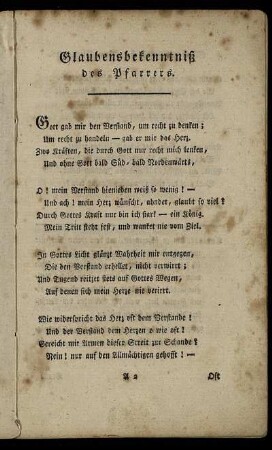 Glaubensbekenntniß
des Pfarrers.
Gott gab mir den Verstand, um recht zu denken;
Um recht zu handeln — gab er mir das Herz.
Zwo Kräften, die durch Gott nur recht mich lenken,
Und ohne Gott bald Süd, bald Nordenwärts.
O! mein Verstand hienieden weiß so wenig! —
Und ach! mein Herz wünscht, ahndet, glaubt so viel!
Durch Gottes Kraft nur bin ich stark — ein König.
Mein Tritt steht fest, und wanket nie vom Ziel.
In Gottes Licht glänzt Wahrheit mir entgegen,
Die den Verstand erhellet, nicht verwirrt;
Und Tugend reitzet stets auf Gottes Wegen,
Auf denen sich mein Herze nie verirrt.
Wie widerspricht das Herz oft dem Verstande!
Und der Verstand dem Herzen o wie oft!
Gereicht mir Armen dieser Streit zur Schande?
Nein! nur auf den Allmächtigen gehofft! —
A 2 Oft